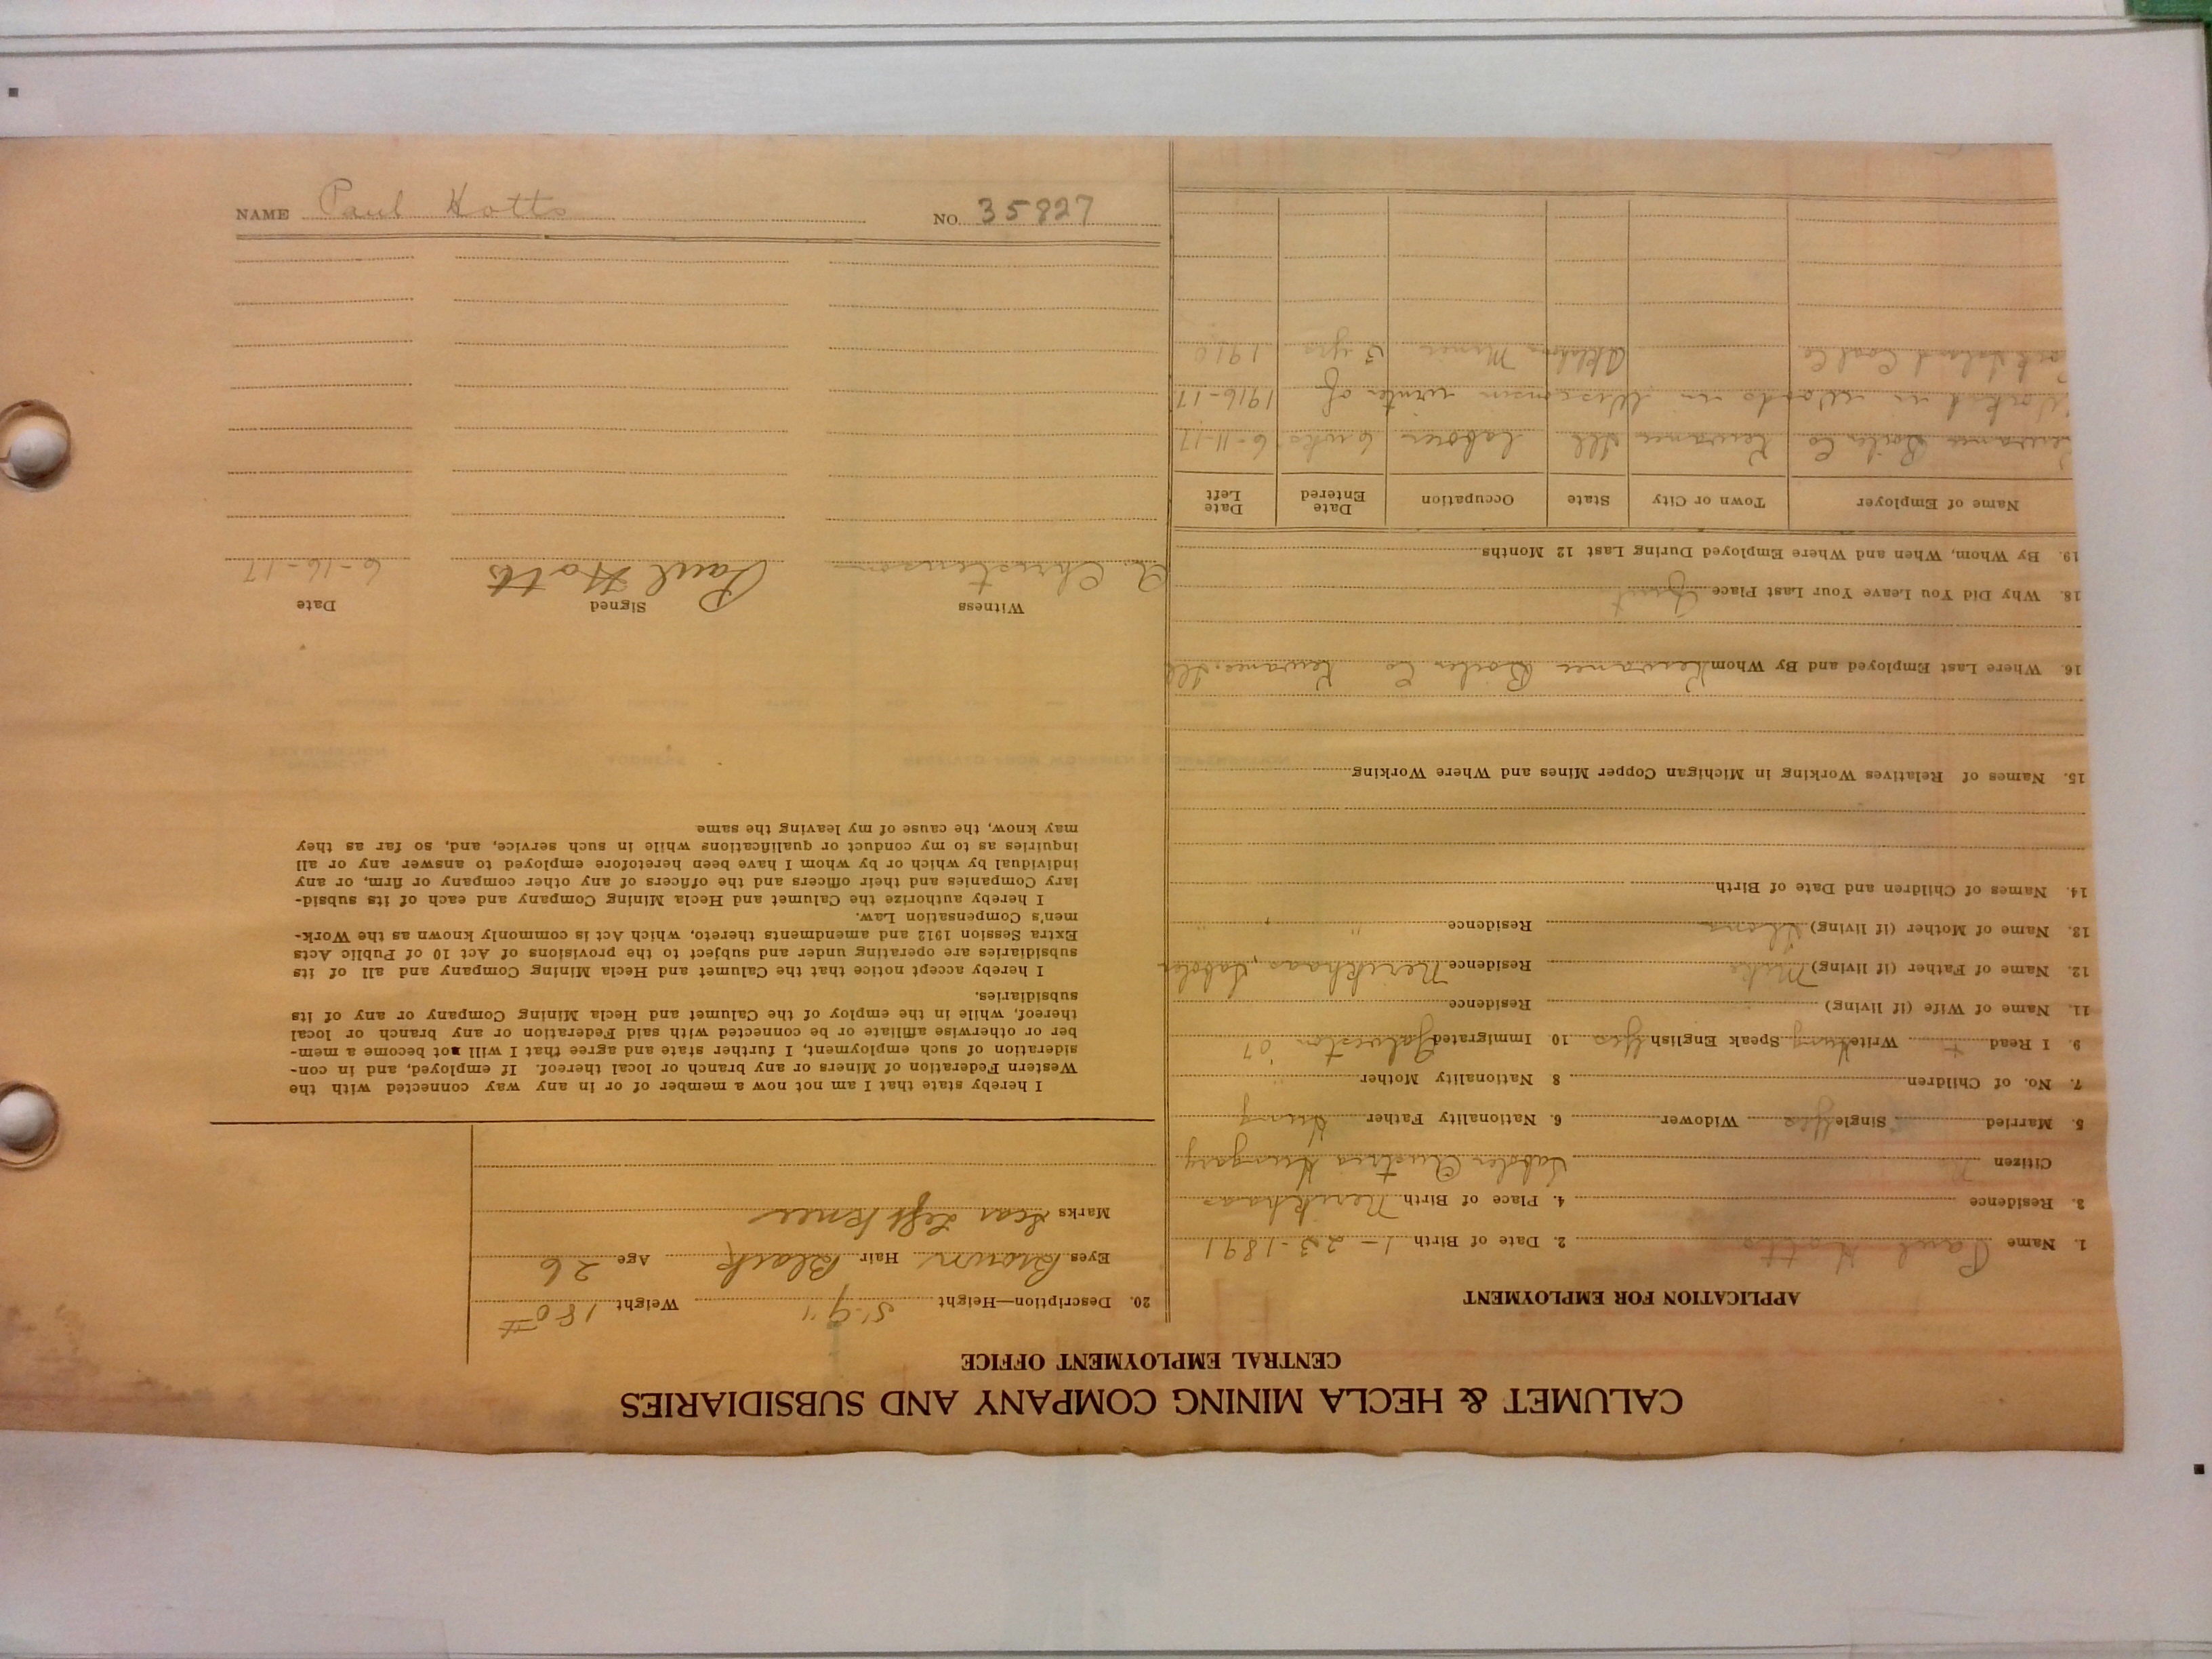 CALUMET & HECLA MINING COMPANY AND SUBSIDIARIES
CENTRAL EMPLOYMENT OFFICE
APPLICATION FOR EMPLOYMENT
1. Name Paul Hotts 2. Date of Birth 1-23-1891
3. Residence 4. Place of Birth
Citizen Austria Hungary
5. Married Single Yes Widower 6. Nationality Father Hung
7. No. of Children 8 Nationality Mother "
9. I Read + Write Hung Speak English Yes 10 Immigrated Galveston 07
11. Name of Wife (if living) Residence
12. Name of Father (if living) Mike Residence
13. Name of Mother (if living) Residence " "
14. Names of Children and Date of Birth
15. Names of Relatives Working in Michigan Copper Mines and Where Working
16. Where Last Employed and By Whom Kewanee Boiler Co Kewanee Ill
18. Why Did You Leave Your Last Place Quit
19. By Whom, When and Where Employed During Last 12 Months
Name of Employer Town or City State Occupation Date Entered Date Left
Kewanee Boiler Co Kewanee Ill laborer 6 wks 6-11-17
Worked in Woods in Wisconsin winter of 1916-17
Rock Island Coal Co Oklahoma Miner 3 yrs 1910
20. Description—Height 5'-9" Weight 180#
Eyes Brown Hair Black Age 26
Marks Scar Left Knee
I hereby state that I am not now a member of or in any way connected with the
Western Federation of Miners or any branch or local thereof. If employed, and in con-
sideration of such employment, I further state and agree that I will not become a mem-
ber or otherwise affiliate or be connected with said Federation or any branch or local
thereof, while in the employ of the Calumet and Hecla Mining Company or any of its
subsidiaries.
I hereby accept notice that the Calumet and Hecla Mining Company and all of its
subsidiaries are operating under and subject to the provisions of Act 10 of Public Acts
Extra Session 1912 and amendments thereto, which Act is commonly known as the Work-
men's Compensation Law.
I hereby authorize the Calumet and Hecla Mining Company and each of its subsid-
iary Companies and their officers and the officers of any other company or firm, or any
individual by which or by whom I have been heretofore employed to answer any or all
inquiries as to my conduct or qualifications while in such service, and, so far as they
may know, the cause of my leaving the same
Witness Signed Date
A. Christenson Paul Hotts 6-16-17
NAME Paul Hotts NO. 35827